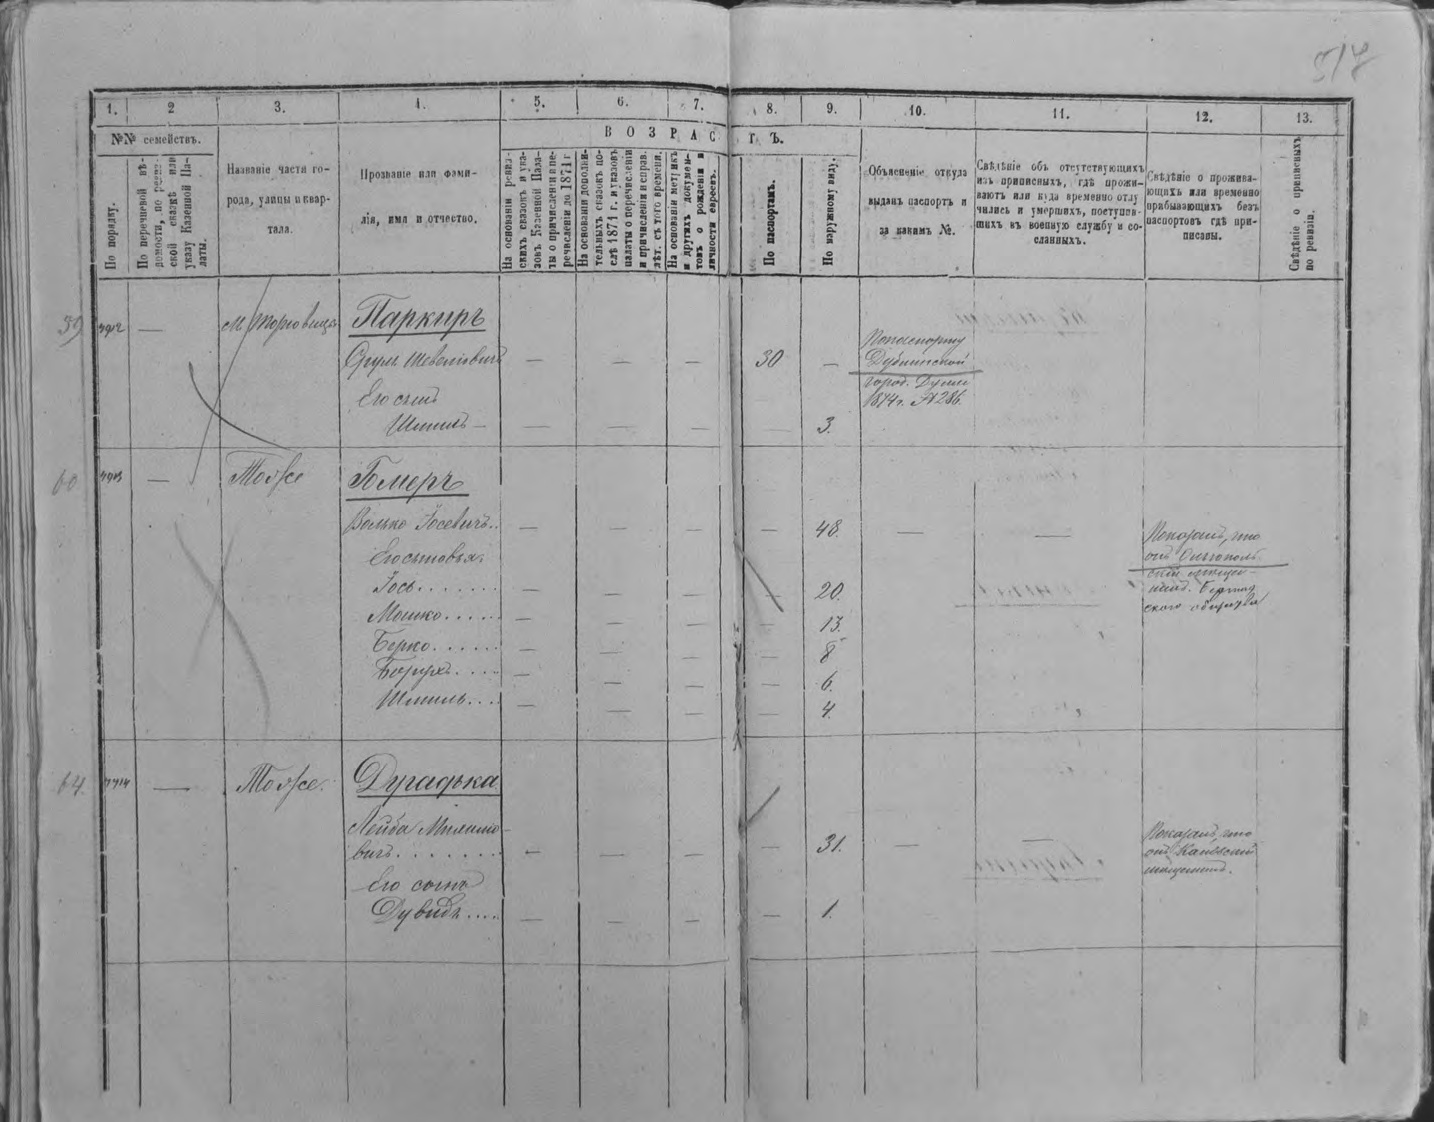 517
1.
2
3.
4.
5.
6.
7.
8.
9.
10.
11.
12.
13.
№№ семействъ.
ВОЗРАСТЪ.
По порядку.
По перечневой вѣ-
домости, по ревиз-
ской сказкѣ или
указу Казенной Па-
латы.
Названіе части го-
рода, улицы и квар-
тала.
Прозваніе или фами-
лія, имя и отчество.
На основаніи ревиз-
скихъ сказокъ и ука-
зовъ Казенной Пала-
ты о причисленіи и пе-
речисленіи до 1871 г
На основаніи дополни-
тельныхъ сказокъ по-
слѣ 1871 г. и указовъ
палаты о перечисленіи
и причисленіи и справ.
лѣт. съ того времени.
На основаніи метрикъ
и другихъ докумен-
товъ о рожденіи и
личности евреевъ.
По паспортамъ.
По наружному виду.
Объясненіе, откуда
выданъ паспортъ и
за какимъ №.
Свѣдѣніе объ отсутствующихъ
изъ приписныхъ, гдѣ прожи-
ваютъ или куда временно отлу
чились и умершихъ, поступив-
шихъ въ военную службу и со-
сланныхъ.
Свѣдѣніе о прожива-
ющихъ или временно
прибывающихъ безъ
паспортовъ гдѣ при-
писаны.
Свѣдѣніе о приписныхъ
по ревизіи.
59
— м. Торговица Паркиръ
Срулъ — — — 30 —
Попаспорту
Дубнинской
город. Думы
1874 г. № 286.
Его сынъ
Шмиль — 3.
60
— Тоже Гомеръ
Волько Іосевичъ.. — — — — 48. — —
Показалъ, что
онъ
Его сыновья:
Іось....... — — — — 20.
Мошко...... — — — — 13.
Берко....... — — — — 8
Борухъ..... — — — — 6.
Шмиль... — — — — 4.
7414 — Тоже.
Лейба
вичъ........ — — — — 31. — —
Показалъ, что
онъ Каневскій
мещанинъ.
Его сынъ
Дувидъ.... — — — — 1.